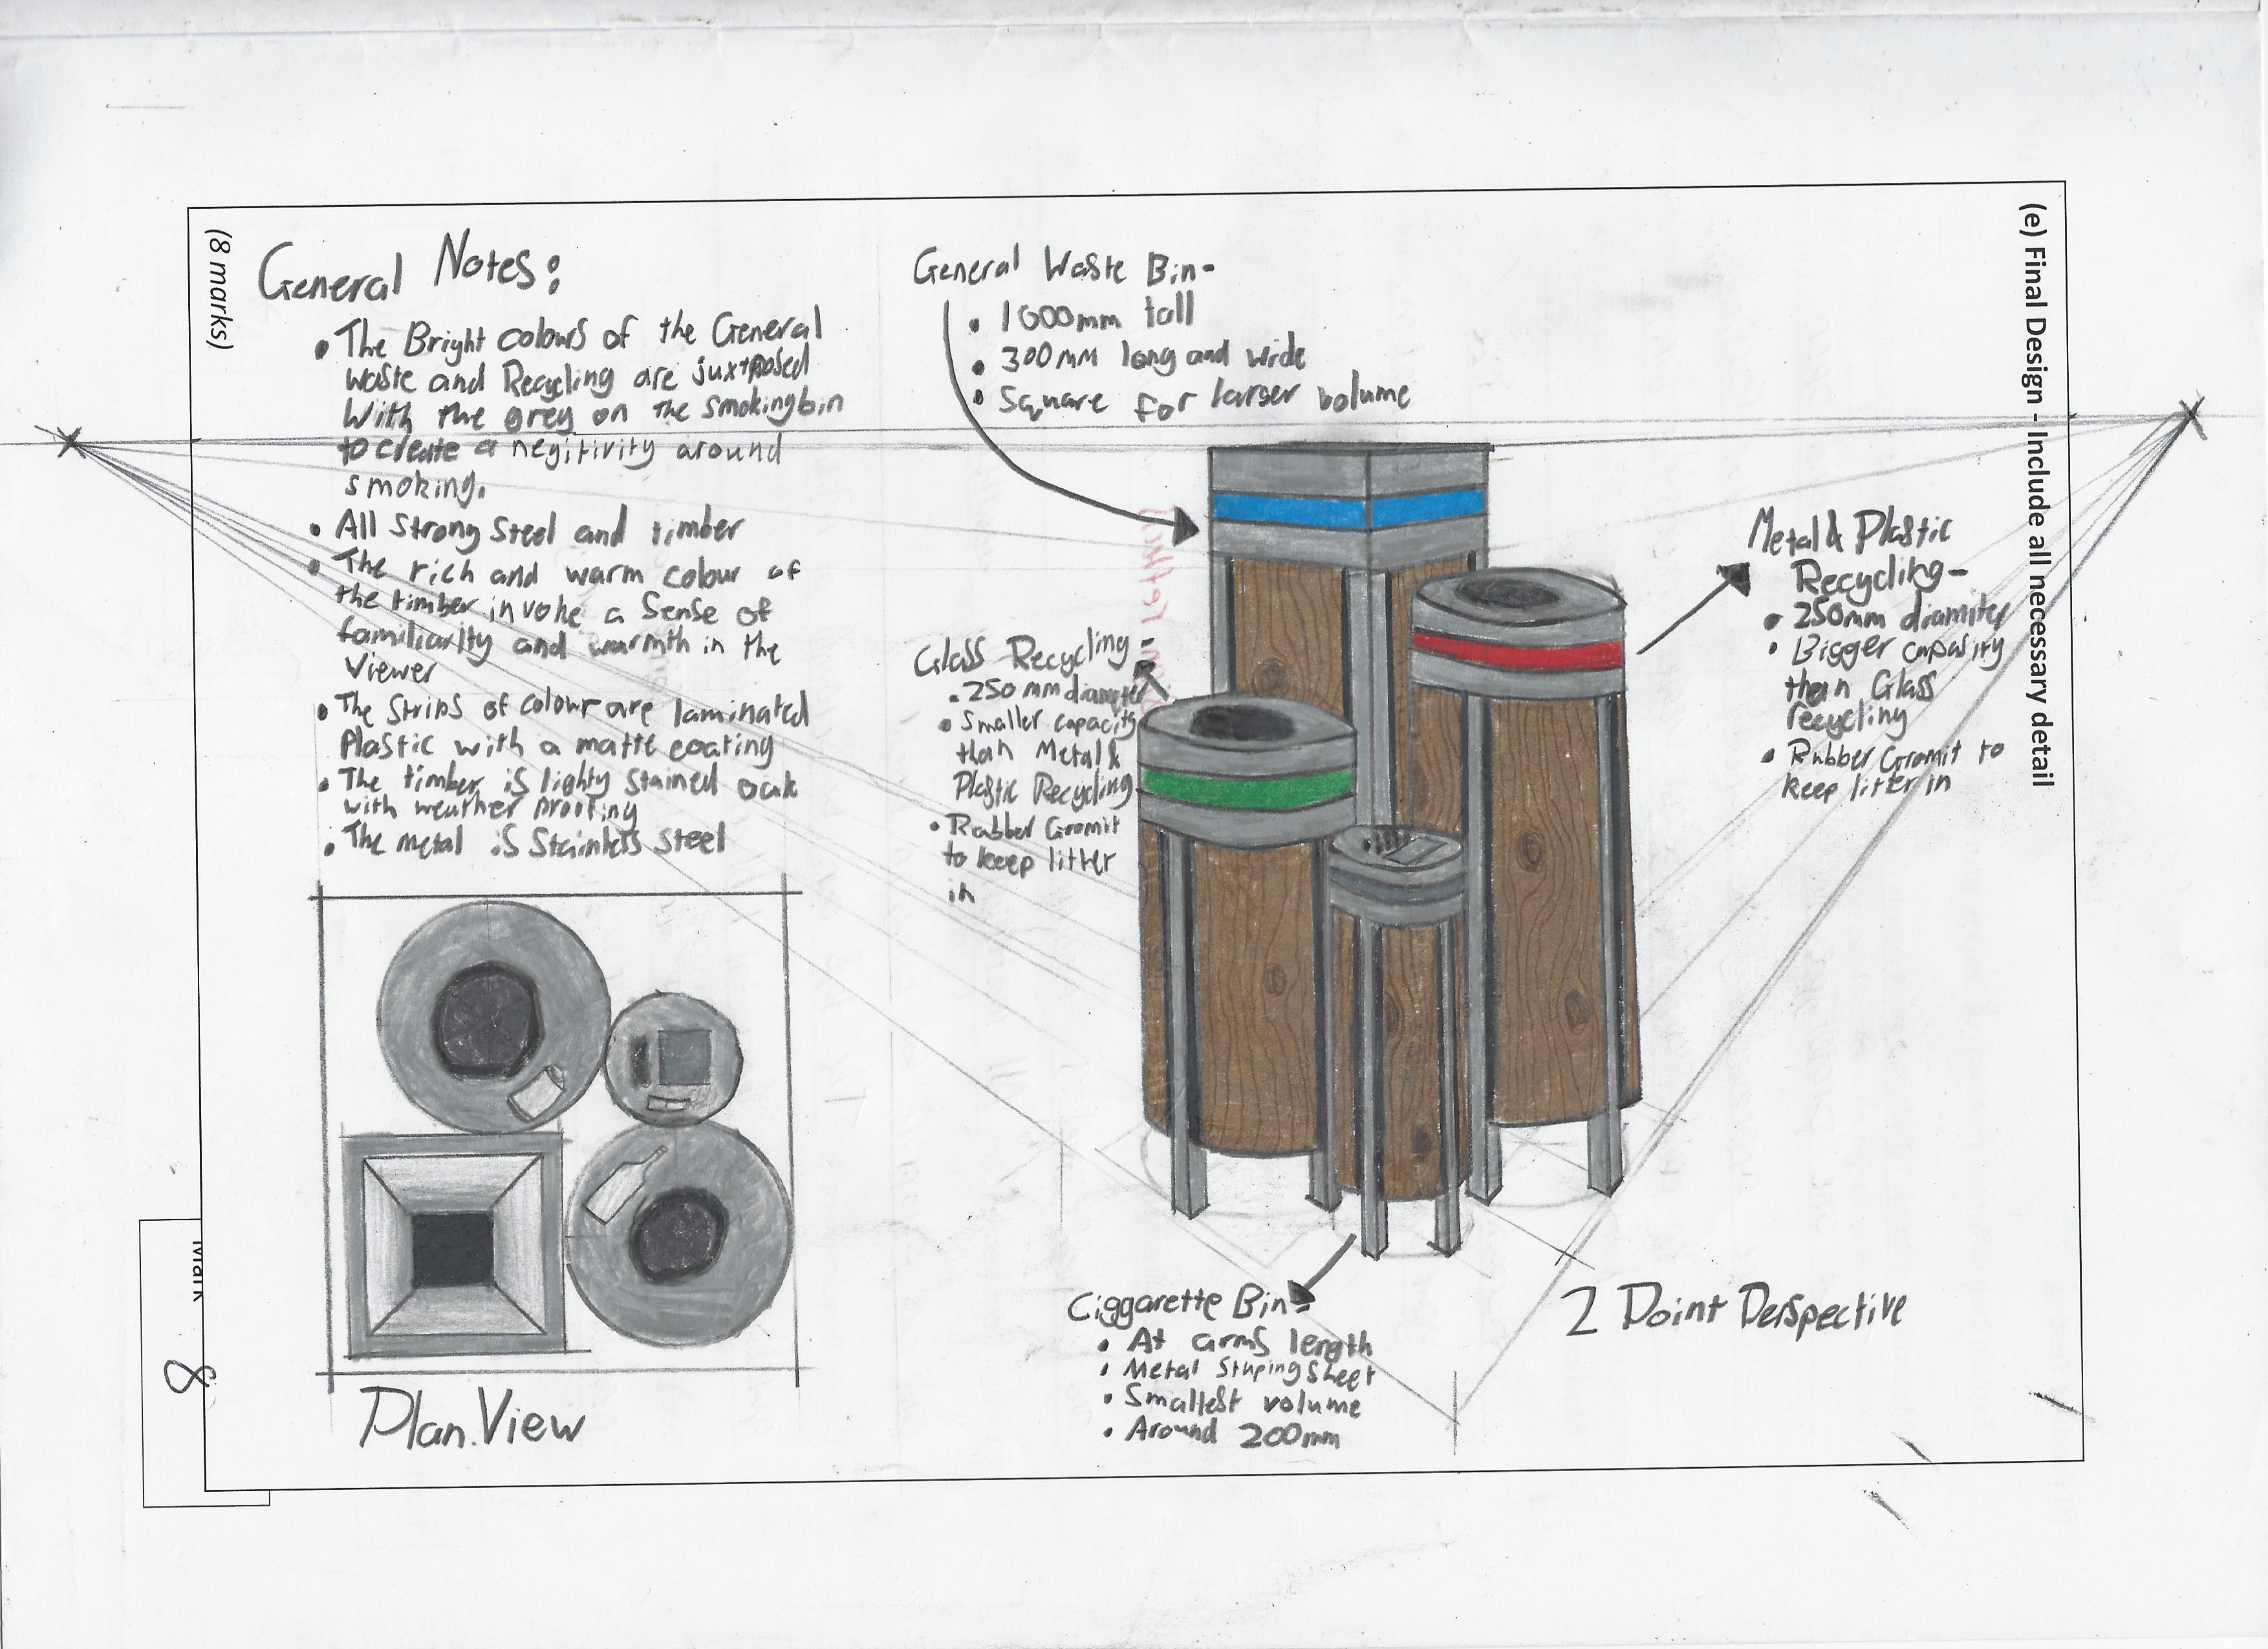 (e) Final Design - Include all necessary detail
(8 marks)
General Notes:
• The Bright colours of the General
waste and Recycling are juxtposed
With the grey on the smoking bin
to create a negitivity around
smoking.
• All Strong Steel and timber
• The rich and warm colour of
the timber invoke a Sense of
familiarity and warmth in the
viewer
• The Strips of colour are laminated
Plastic with a matte coating
• The timber is lighty Stained oak
with weather proofing
• The metal is Stainless Steel
Plan View
General Waste Bin-
• 1000mm tall
• 300mm long and wide
• Square for larger volume
Glass Recycling-
• 250mm diameter
• Smaller capacity
than Metal &
Plastic Recycling
• Rubber Gromit
to keep litter
in
Metal & Plastic
Recycling-
• 250mm diamiter
• Bigger capasity
than Glass
recycling
• Rubber Gromit to
keep litter in
Ciggarette Bin-
• At arms length
• Metal Stuping Sheet
• Smallest volume
• Around 200mm
2 Point Perspective
Mark
8